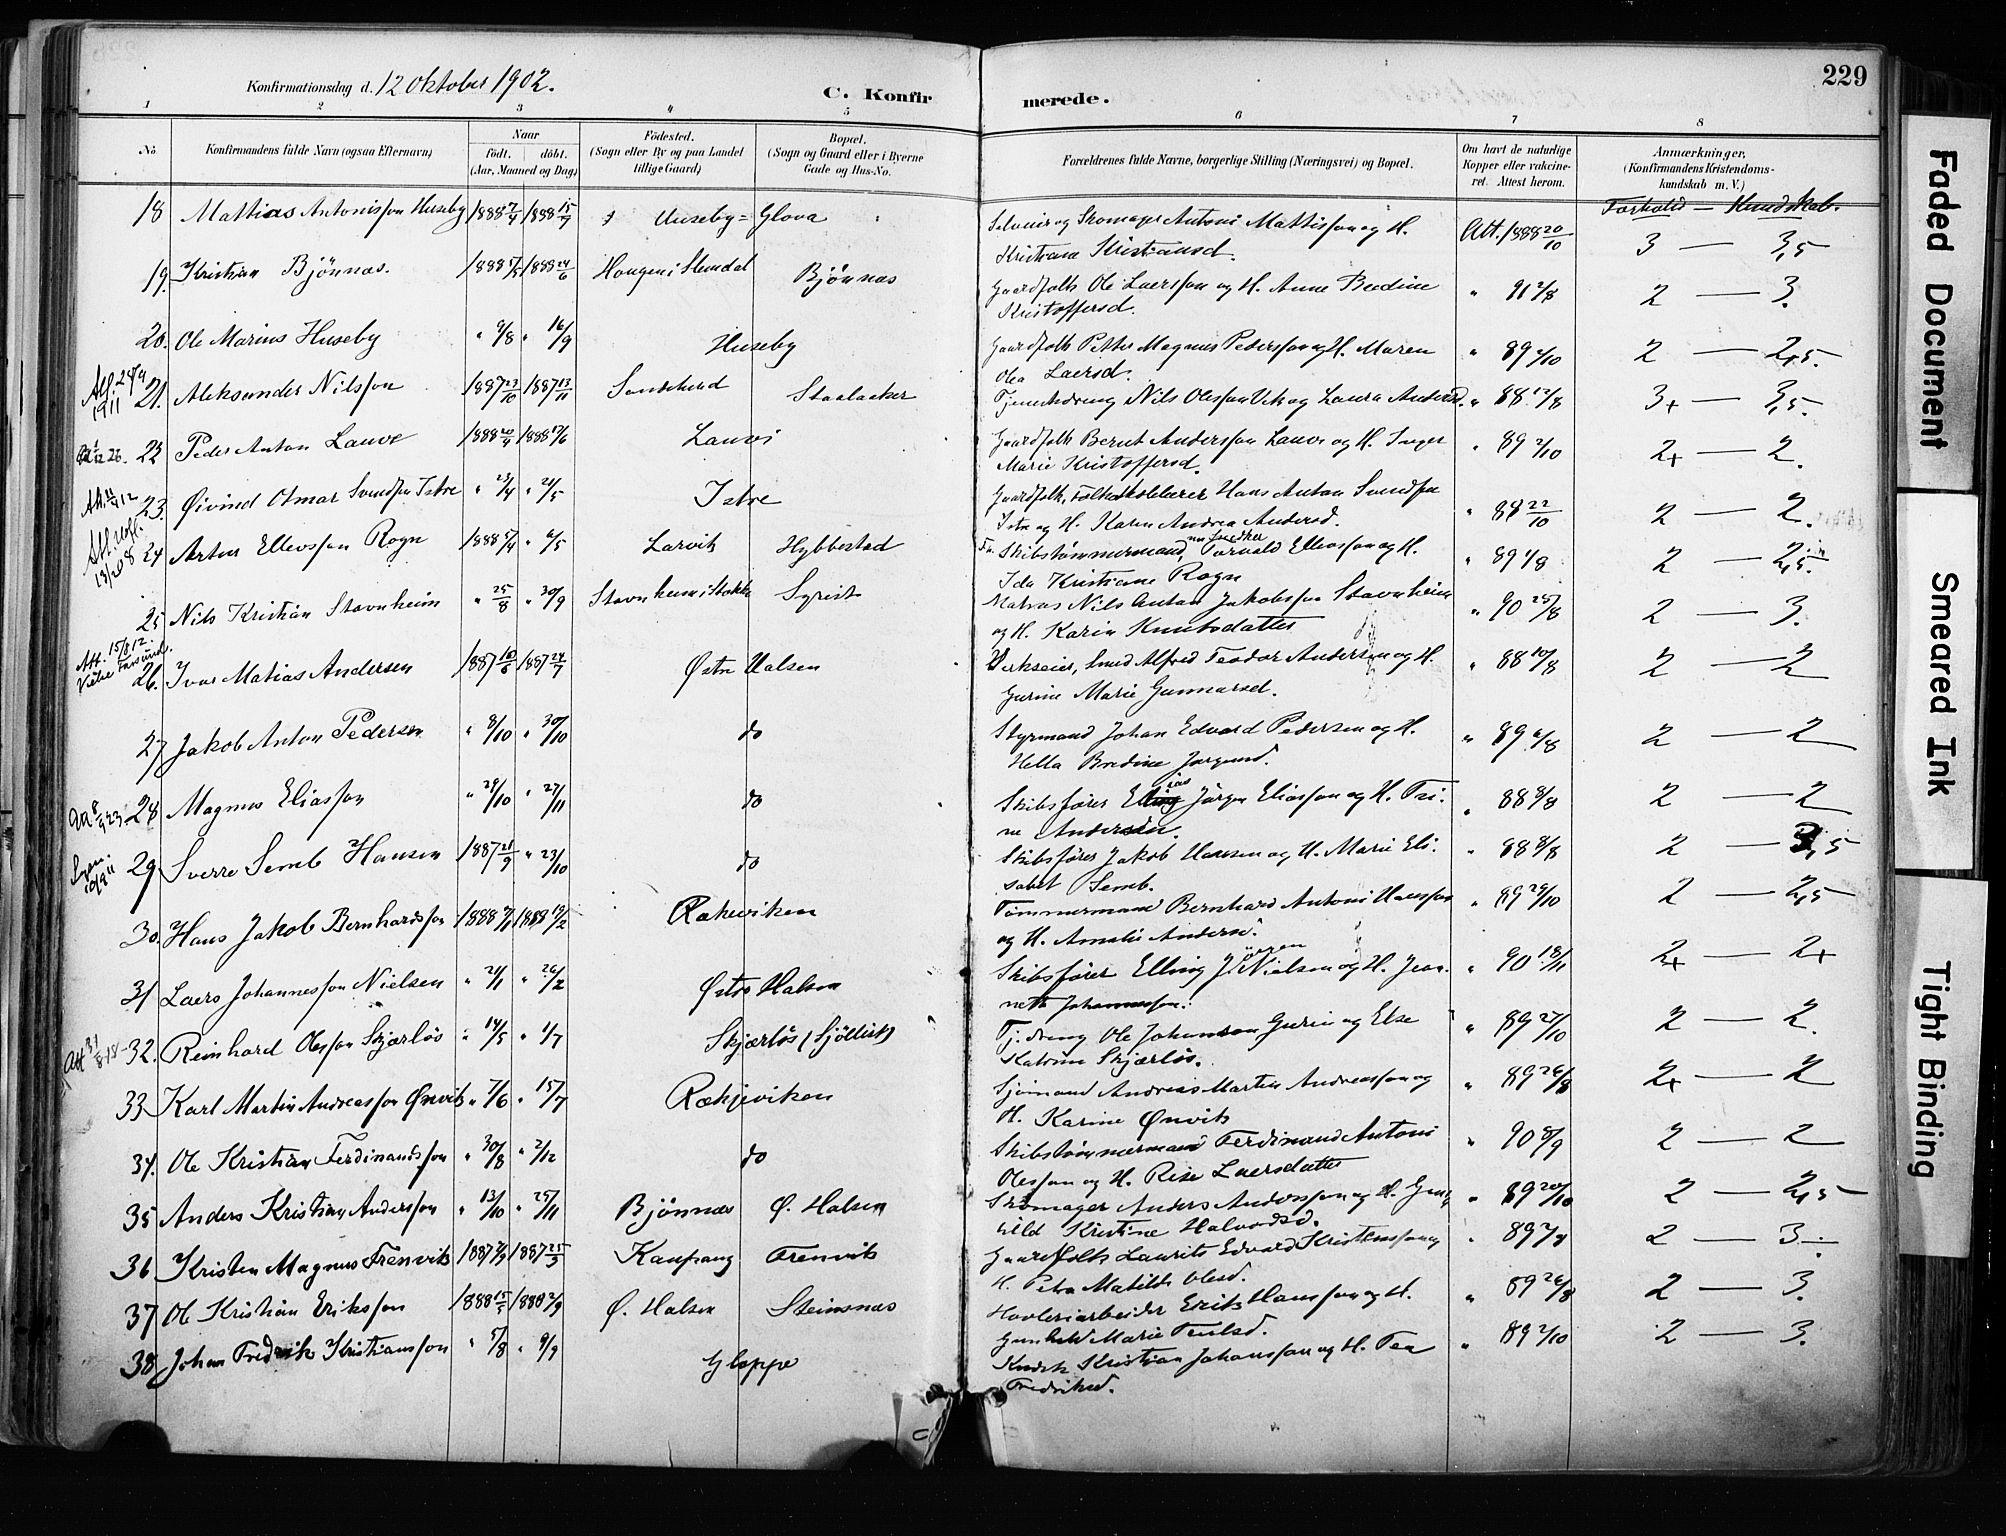 229
Konfirmationsdag d. 12 Oktober 1902.
C. Konfirmerede.
1 2 3 4 5 6 7 8
No. Konfirmandens fulde Navn (ogsaa Efternavn)
Naar født. døbt. (Aar, Maaned og Dag)
Fødested. (Sogn eller By og paa Landet tillige Gaard)
Bopæl. (Sogn og Gaard eller i Byerne Gade og Hus-No.
Forældrenes fulde Navne, borgerlige Stilling (Næringsvei) og Bopæl.
Om havt de naturlige Kopper eller vakcineret. Attest herom.
Anmærkninger, (Konfirmandens Kristendomskundskab m. V.)
Forhold — Kundskab.
18 Mattias Antonisson Huseby 1888 1888 15/7 Huseby = Glova Selveier og Skomager Antoni Mattisson og H. Att. 1888 20/10 3 — 3,5
Kristiane Kristiansd.
19. Kristian Bjönnæs. 1888 1888 24/6 Haugen i Slemdal Bjönnæs Gaardfolk Ole Laersson og H. Anne Bredine " 91 2/8 2 — 3.
Kristoffersd.
20. Ole Marius Huseby " 9/8 " 16/9 Huseby Gaardfolk Petter Magnus Pedersson og H. Maren " 89 2/10 2 — 2,5.
Olea Laersd.
Att. 24/9 1911 21. Aleksander Nilsson 1887 23/10 1887 13/11 Sandeherad Staalaaker Tjenestedreng Nils Olesson Vik og Laura Andersd. " 88 12/8 3+ — 3,5.
22 Peder Anton Lauve 1888 20/4 1888 17/6 Lauvi Gaardfolk Bernt Andersson Lauve og H. Inger " 89 2/10 2+ — 2.
Marie Kristoffersd.
23. Øivind Otmar Svendsen Istre " 2/4 " 21/5 Istre Gaardfolk, Folkeskolelærer Hans Anton Svendsen " 88 22/10 2 — 2.
Istre og H. Karen Andrea Andersd.
24 Artur Ellevsson Rogn 1888 5/4 " 6/5 Larvik Hybbestad Fv. Skibstømmermand, nu Snedker Torvald Ellevsson og H. " 89 1/8 2 — 2,5.
Ida Kristiane Rogn
25 Nils Kristian Stavnheim " 25/8 " 30/9 Stavnheim i Stokke Syrist Matros Nils Anton Jakobsson Stavnheim " 90 25/8 2 — 3.
og H. Karin Knutsdatter
Att. 15/8 12. 26. Ivar Matias Andersen 1887 10/6 1887 24/7 Østre Halsen Verkseier, Smed Alfred Teodor Andersen og H. " 88 10/8 2 — 2
Gurine Marie Gunnarsd.
27 Jakob Anton Pedersen " 8/10 " 30/10 do Styrmand Johan Edvard Pedersen og H. " 89 6/8 2 — 2
Hella Bredine Jørgensd.
28 Magnus Eliasson " 29/10 " 27/11 do Skibsfører Elias Jörgen Eliasson og H. Tri- " 88 8/8 2 — 2
ne Andersen.
29 Sverre Semb Hansen 1887 21/9 " 23/10 do Skibsfører Jakob Hansen og H. Marie Eli- " 88 8/8 2 — 3,5
sabet Semb.
30. Hans Jakob Bernhardsson 1888 1888 19/2 Rækeviken Tømmermand Bernhard Antoni Hansson " 89 29/10 2 — 2,5
og H. Amalie Anders.
31 Laers Johannesson Nielsen " 21/1 " 26/2 Østre Halsen Skibsfører Elling Jörgen Nielsen og H. Jean- " 90 18/11 2+ — 2+
nette Johannesson.
Att 31/8 18 32. Reinhard Olesson Skjærløs " 14/5 " 1/7 Skjærløs (Sjöllist) Tj.dreng Ole Johanson Gurin og Else " 89 27/10 2 — 2.
Katrine Skjærløs.
33 Karl Martin Andreasson Ønvik " 7/6 " 15/7 Rækjeviken Sjömand Andreas Martin Andreasson og " 89 26/8 2+ — 2
H. Karine Ønvik
34. Ole Kristian Ferdinandsson " 30/8 " 2/12 do Skibstømmermand Ferdinand Antoni " 90 8/9 2 — 2
Olesson og H. Rise Laersdatter
35 Anders Kristian Andersson " 13/10 " 25/11 Bjönnæs Ø. Halsen Skomager Anders Andersson og H. Gun- " 89 20/10 2 — 2,5
hild Kristine Halvorsd.
36 Kristen Magnus Trenvik 1887 1887 Kaupang Trenvik Gaardfolk Laurits Edvard Kristensson og " 89 2 — 3
H. Petra Matilde Olesd.
37 Ole Kristian Eriksson 1888 15/5 1888 2/9 Ø. Halsen Steinsnæs Hovleriarbeider Erik Hansson og H. " 89 26/8 2 — 3.
Gunhild Marie
38 Johan Fredrik Kristiansson " 5/8 " 9/9 Gloppe Kudsk Kristian Johansson og H. Tea " 89 2/10 2 — 3.
Fredriksd.
Faded Document
Smeared Ink
Tight Binding